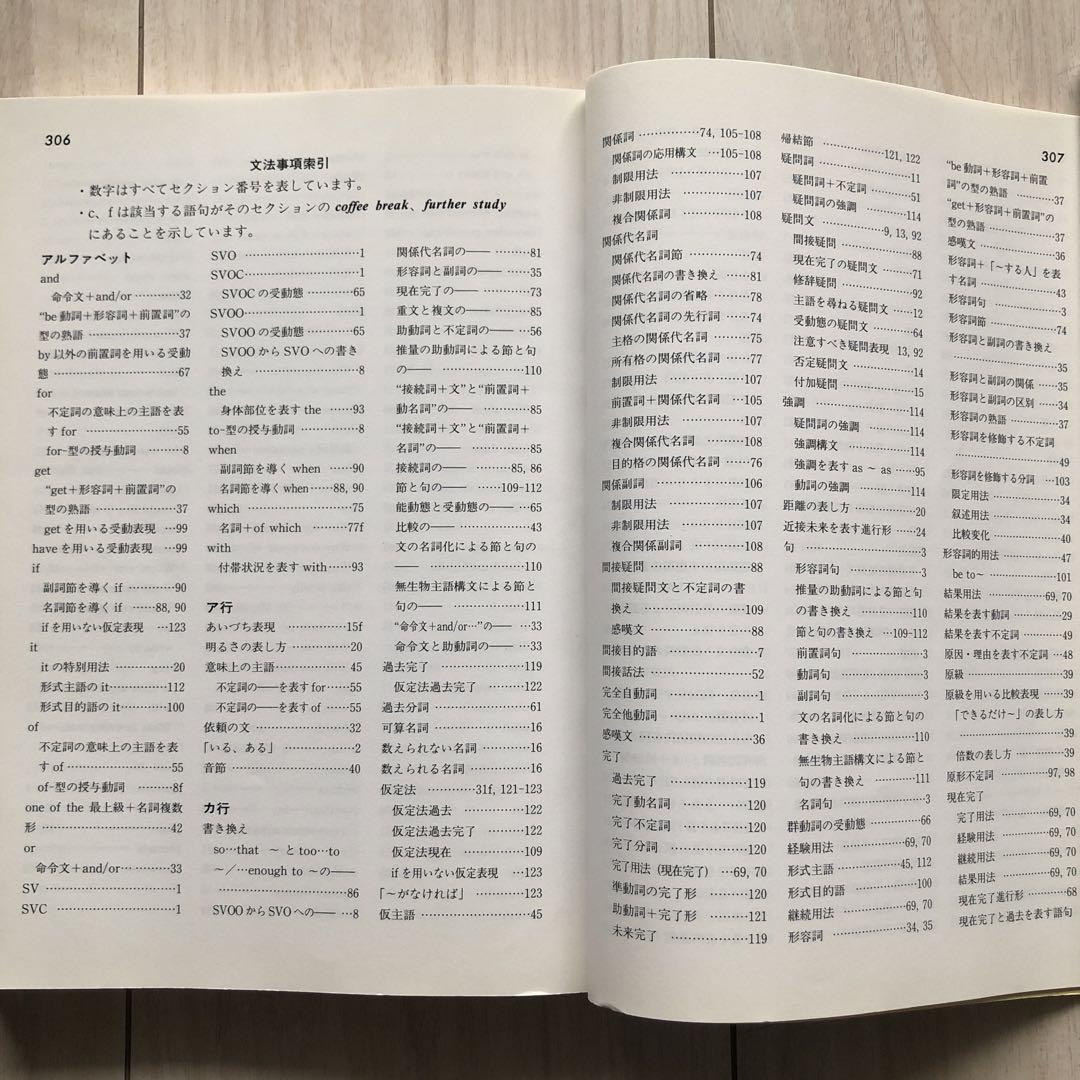 306
文法事項索引
・数字はすべてセクション番号を表しています。
・c、f は該当する語句がそのセクションの coffee break、further study
にあることを示しています。
アルファベット
and
命令文+and/or …………32
"be動詞+形容詞+前置詞"の
型の熟語 ………………37
by以外の前置詞を用いる受動
態 ………………………67
for
不定詞の意味上の主語を表
すfor ……………………55
for-型の授与動詞 ………8
get
"get+形容詞+前置詞"の
型の熟語 ………………37
getを用いる受動表現 …99
haveを用いる受動表現 …99
if
副詞節を導くif …………90
名詞節を導くif ……88, 90
ifを用いない仮定表現 …123
it
itの特別用法 ……………20
形式主語のit……………112
形式目的語のit…………100
of
不定詞の意味上の主語を表
すof………………………55
of-型の授与動詞 ………8f
one of the 最上級+名詞複数
形 ………………………42
or
命令文+and/or…………33
SV …………………………1
SVC …………………………1
SVO …………………………1
SVOC…………………………1
SVOCの受動態 …………65
SVOO…………………………1
SVOOの受動態 …………65
SVOOからSVOへの書き
換え ………………………8
the
身体部位を表すthe ……93
to-型の授与動詞 …………8
when
副詞節を導くwhen ……90
名詞節を導くwhen……88, 90
which ………………………75
名詞+of which ………77f
with
付帯状況を表すwith……93
ア行
あいづち表現 ……………15f
明るさの表し方 …………20
意味上の主語………………45
不定詞の――を表すfor……55
不定詞の――を表すof ……55
依頼の文 …………………32
「いる、ある」 ……………2
音節 ………………………40
カ行
書き換え
so…that ~とtoo…to
~/…enough to ~の――
………………………86
SVOOからSVOへの―― …8
関係代名詞の―― ………81
形容詞と副詞の―― ……35
現在完了の―― …………73
重文と複文の―― ………85
助動詞と不定詞の―― …56
推量の助動詞による節と句
の―― …………………110
"接続詞+文"と"前置詞+
動名詞"の―― …………85
"接続詞+文"と"前置詞+
名詞"の―― ……………85
接続詞の―― ………85, 86
節と句の―― ……109-112
能動態と受動態の―― …65
比較の―― ………………43
文の名詞化による節と句の
―― ……………………110
無生物主語構文による節と
句の―― ………………111
"命令文+and/or…"の―― …33
命令文と助動詞の―― …33
過去完了 …………………119
仮定法過去完了 ………122
過去分詞 …………………61
可算名詞 …………………16
数えられない名詞 ………16
数えられる名詞 …………16
仮定法 …………31f, 121-123
仮定法過去 ……………122
仮定法過去完了 ………122
仮定法現在 ……………109
ifを用いない仮定表現 …123
「~がなければ」 …………123
仮主語 ……………………45
関係詞 ……………74, 105-108
関係詞の応用構文 …105-108
制限用法 ………………107
非制限用法 ……………107
複合関係詞 ……………108
関係代名詞
関係代名詞節 ……………74
関係代名詞の書き換え …81
関係代名詞の省略 ………78
関係代名詞の先行詞 ……74
主格の関係代名詞 ………75
所有格の関係代名詞 ……77
制限用法 ………………107
前置詞+関係代名詞 …105
非制限用法 ……………107
複合関係代名詞 ………108
目的格の関係代名詞 ……76
関係副詞 …………………106
制限用法 ………………107
非制限用法 ……………107
複合関係副詞 …………108
間接疑問 …………………88
間接疑問文と不定詞の書
換え ……………………109
感嘆文 …………………88
間接目的語 …………………7
間接話法 …………………52
完全自動詞 …………………1
完全他動詞 …………………1
感嘆文 ……………………36
完了
過去完了 ………………119
完了動名詞 ……………120
完了不定詞 ……………120
完了分詞 ………………120
完了用法(現在完了) …69, 70
準動詞の完了形 ………120
助動詞+完了形 ………121
未来完了 ………………119
帰結節 ………………121, 122
疑問詞 ……………………11
疑問詞+不定詞 …………51
疑問詞の強調 …………114
疑問文 …………………9, 13, 92
間接疑問 …………………88
現在完了の疑問文 ………71
修辞疑問 …………………92
主語を尋ねる疑問文 ……12
受動態の疑問文 …………64
注意すべき疑問表現 13, 92
否定疑問文 ………………14
付加疑問 …………………15
強調 ………………………114
疑問詞の強調 …………114
強調構文 ………………114
強調を表すas ~ as ……95
動詞の強調 ……………114
距離の表し方 ……………20
近接未来を表す進行形 …24
句 …………………………3
形容詞句 …………………3
推量の助動詞による節と句
の書き換え ……………110
節と句の書き換え …109-112
前置詞句 …………………3
動詞句 ……………………3
副詞句 ……………………3
文の名詞化による節と句の
書き換え ………………110
無生物主語構文による節と
句の書き換え …………111
名詞句 ……………………3
群動詞の受動態 …………66
経験用法 ………………69, 70
形式主語 ………………45, 112
形式目的語 ………………100
継続用法 ………………69, 70
形容詞 …………………34, 35
307
"be動詞+形容詞+前置
詞"の型の熟語 …………37
"get+形容詞+前置詞"の
型の熟語 ………………37
感嘆文 …………………36
形容詞+「~する人」を表
す名詞 …………………43
形容詞句 …………………3
形容詞節 ………………74
形容詞と副詞の書き換え
………………………35
形容詞と副詞の関係 ……35
形容詞と副詞の区別 ……34
形容詞の熟語 ……………37
形容詞を修飾する不定詞
………………………49
形容詞を修飾する分詞 …103
限定用法 …………………34
叙述用法 …………………34
比較変化 …………………40
形容詞的用法 ……………47
be to~ …………………101
結果用法 ………………69, 70
結果を表す動詞 …………29
結果を表す不定詞 ………49
原因・理由を表す不定詞 …48
原級 ………………………39
原級を用いる比較表現 …39
「できるだけ~」の表し方
………………………39
倍数の表し方 ……………39
原形不定詞 ……………97, 98
現在完了
完了用法 ……………69, 70
経験用法 ……………69, 70
継続用法 ……………69, 70
結果用法 ……………69, 70
現在完了進行形 …………68
現在完了と過去を表す語句